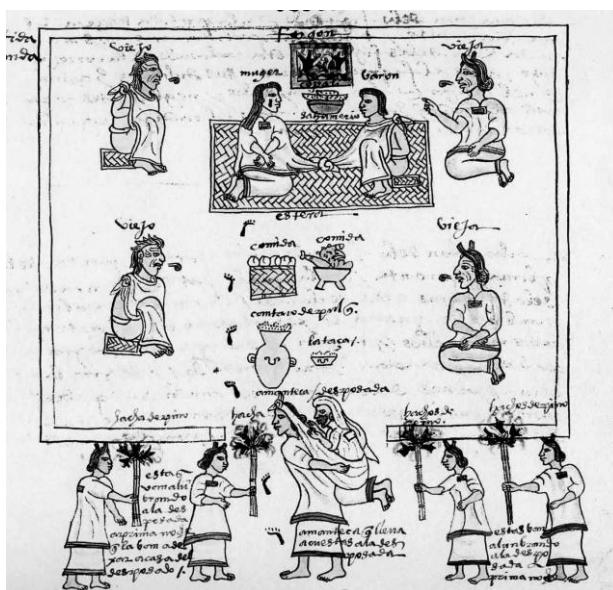 fogon
viejo
vieja
muger
varon
copale
sahumerio
estera
viejo
vieja
comida
comida
cantaro de pulq̃.
la taça /.
amanteca / desposada
hacha de pino
hacha
hachos de
pino.
hachos de pino
estas q̃
van alu
brando
a la des
posada
a prima noch
desposado /.
amanteca q̃ lleva
a cuestas a la des
posada
estas ban
alunbrando
a la despo
sada a
prima noche